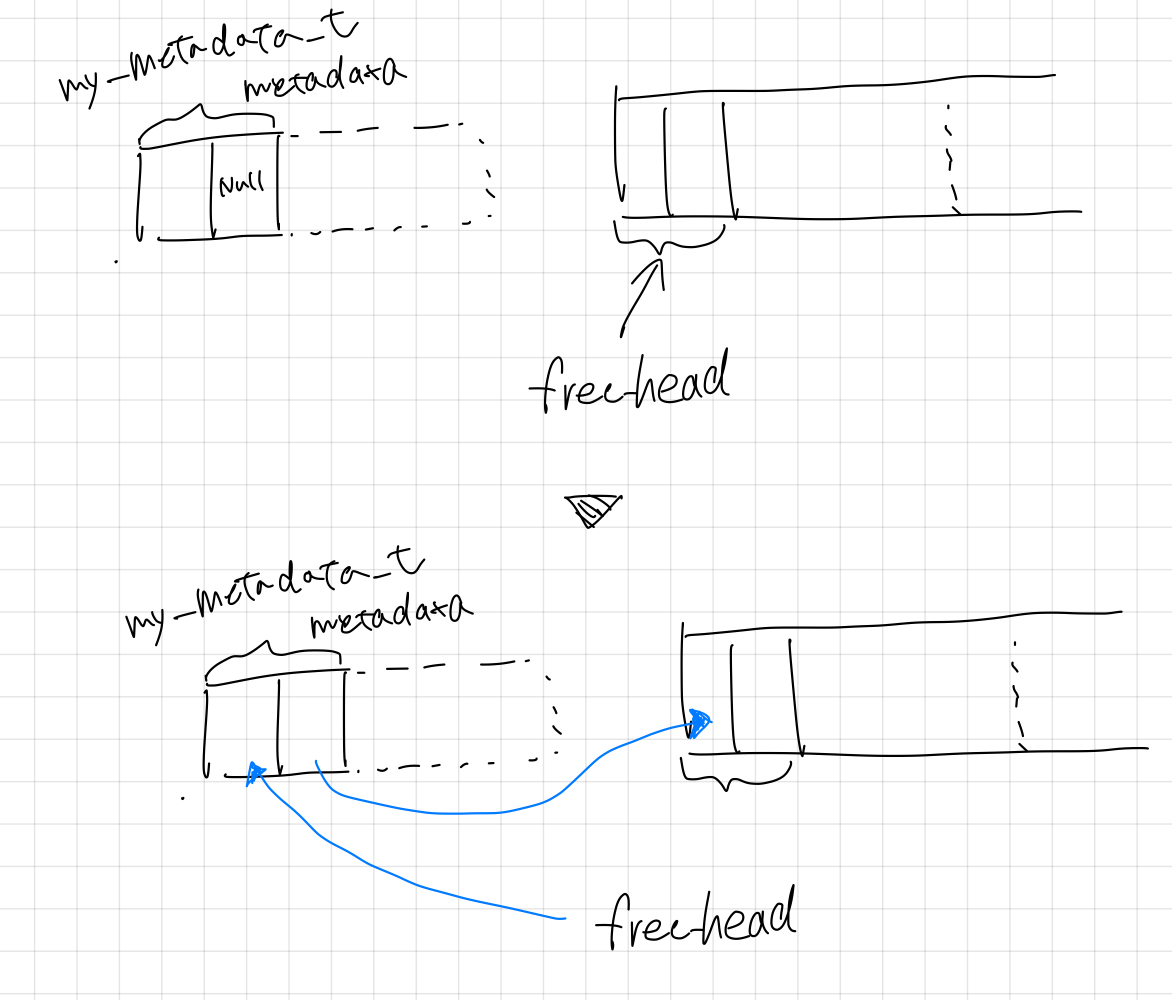 my_metadata_t
metadata
Null
free_head
my_metadata_t
metadata
free_head